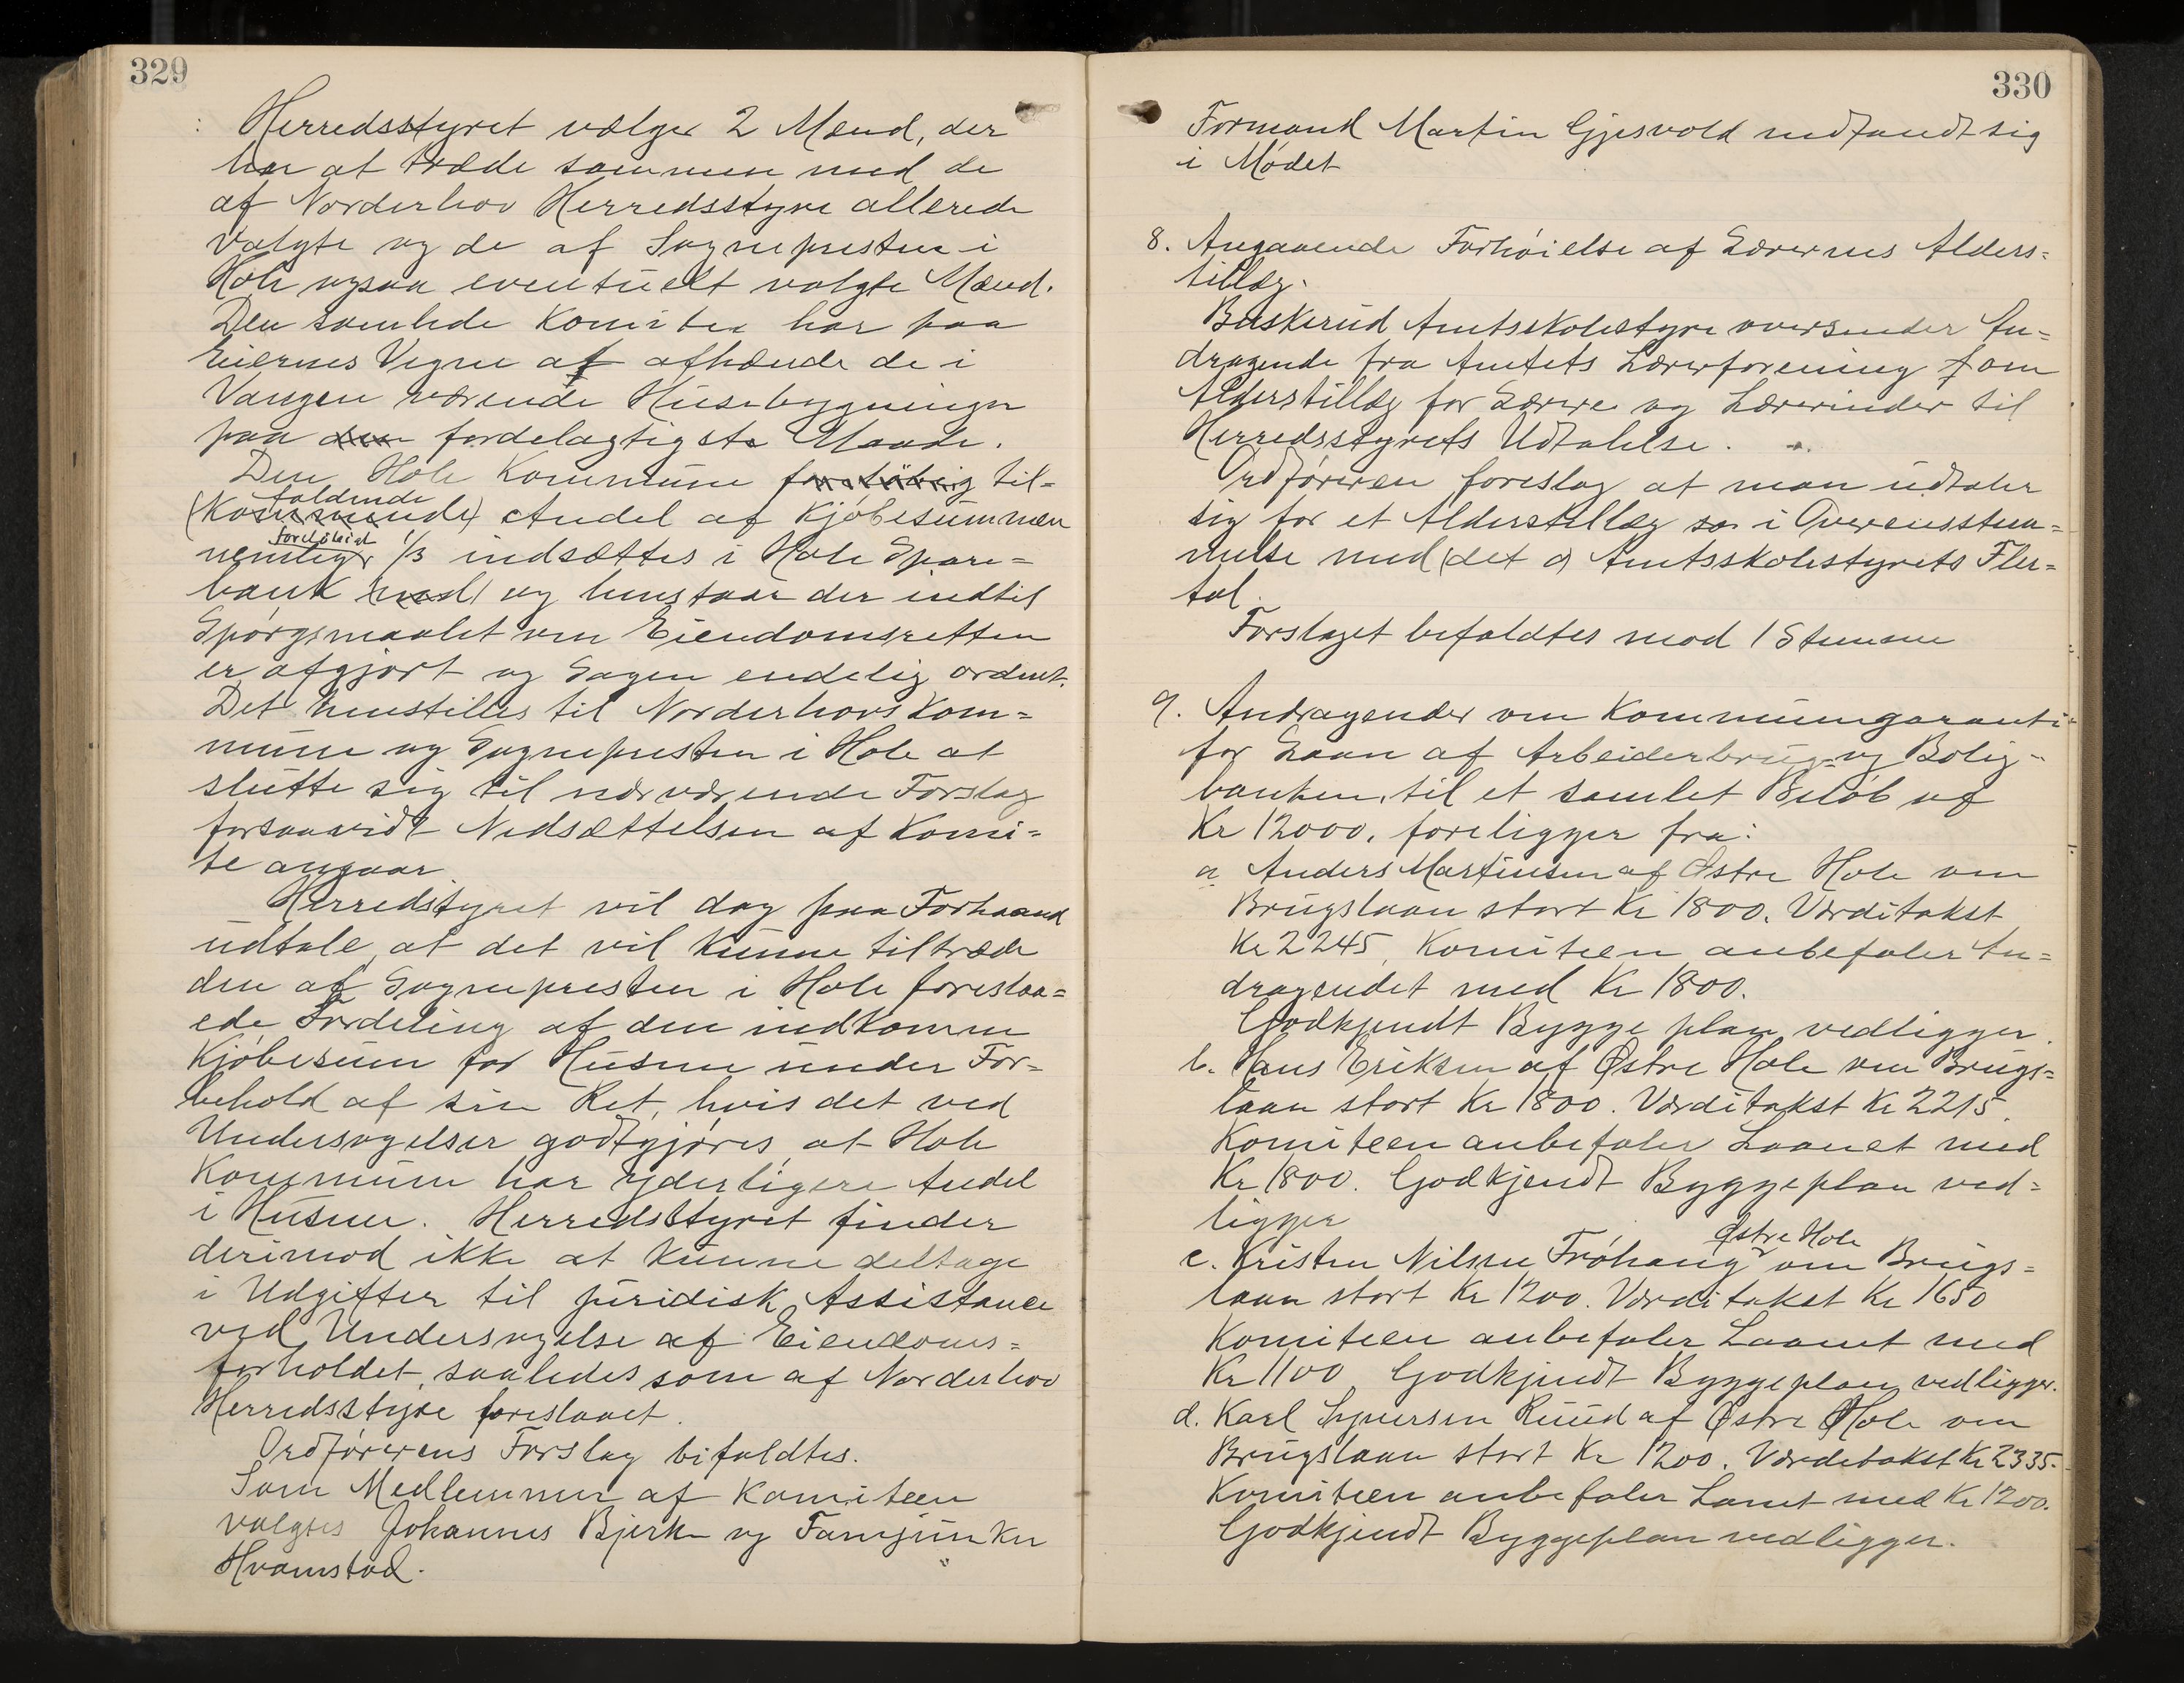 329
Herredsstyret vælger 2 Mænd, der
har at træde sammen med de
af Norderhov Herredsstyre allerede
valgte og de af Sognepresten i
Hole ogsaa eventuelt valgte Mænd.
Den samlede Komite har paa
Eiernes Vegne at afhænde de i
Vangen værende Husebygninger
paa den fordelagtigste Maade.
Den Hole Kommune foreløbig til-
faldende
(Kommende) Andel af Kjøbesummen
foreløbigt
nemlig 1/3 indsættes i Hole Spare=
bank (med) og henstaar der indtil
Spørgsmaalet om Eiendomsretten
er afgjort og Sagen endelig ordnet.
Det henstilles til Norderhovs Kom=
mune og Sognepresten i Hole at
slutte sig til nærværende Forslag
forsaavidt Nedsættelsen af Komi=
te angaar
Herredstyret vil dog paa Forhaand
udtale, at det vil kunne tiltræde
den af Sognepresten i Hole foreslaa=
ede Fordeling af den indkomne
Kjøbesum for Husene under For=
behold af sin Ret, hvis det ved
Undersøgelser godtgjøres, at Hole
Kommune har yderligere Andel
i Husene. Herredsstyret finder
derimod ikke at kunne deltage
i Udgifter til juridisk Assistance
ved Undersøgelse af Eiendoms=
forholdet, saaledes som af Norderhov
Herredsstyre foreslaaet.
Ordførerens Forslag bifaldtes.
Som Medlemmer af Komiteen
valgtes Johannes Bjerke og Fanejunker
Hvamstad.
330
Formand Martin Gjesvold indfandt sig
i Mødet
8. Angaaende Forhøielse af Lærernes Alders=
tillæg.
Buskerud Amtsskolestyre oversender An=
dragende fra Amtets Lærerforening f om
Alderstillæg for Lærere og Lærerinder til
Herredsstyrets Udtalelse.
Ordføreren foreslog at man udtaler
sig for et Alderstillæg so i Overensstem=
melse med (det a) Amtsskolestyrets Fler=
tal.
Forslaget bifaldtes mod 1 Stemme
9. Andragender om Kommunegaranti
for Laan af Arbeiderbrug- og Bolig-
banken, til et samlet Beløb af
Kr 12000, foreligger fra:
a Anders Martinsen af Østre Hole om
Brugslaan stort Kr 1800. Værditakst
Kr 2245, Komiteen anbefaler An=
dragendet med Kr 1800.
Godkjendt Byggeplan vedligger.
b. Hans Eriksen af Østre Hole om Brugs=
laan stort Kr 1800. Værditakst Kr 2215.
Komiteen anbefaler Laanet med
Kr 1800. Godkjendt Byggeplan ved=
ligger
Østre Hole
c. Kristen Nilsen Frøhaug om Brugs=
laan stort Kr 1200. Værditakst Kr 1650
Komiteen anbefaler Laanet med
Kr 1100 Godkjendt Byggeplan vedligger.
d. Karl Syversen Ruud af Østre Hole om
Brugslaan stort Kr 1200. Værditakst Kr 2335.
Komiteen anbefaler Lanet med Kr 1200.
Godkjendt Byggeplan vedligger.